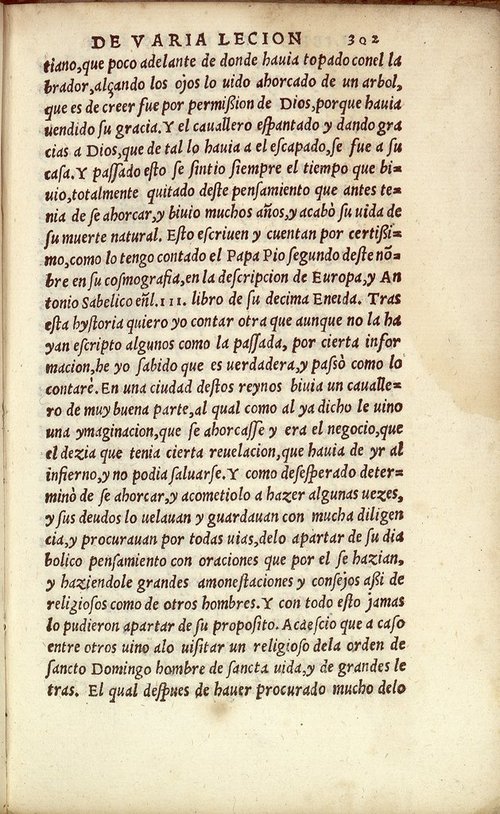 DE VARIA LECION 302
tiano,que poco adelante de donde havia topado conel la
brador,alçando los ojos lo uido ahorcado de un arbol,
que es de creer fue por permißion de Dios,porque havia
uendido su gracia.Y el cauallero espantado y dando gra
cias a Dios,que de tal lo havia a el escapado,se fue a su
casa.Y passado esto se sintio siempre el tiempo que bi-
uio,totalmente quitado deste pensamiento que antes te=
nia de se ahorcar,y biuio muchos años,y acabò su uida de
su muerte natural. Esto escriuen y cuentan por certißi=
mo,como lo tengo contado el Papa Pio segundo deste nõ=
bre en su cosmografia,en la descripcion de Europa,y An
tonio Sabelico eñl.III. libro de su decima Eneida. Tras
esta hystoria quiero yo contar otra que aunque no la ha
yan escripto algunos como la passada, por cierta infor
macion,he yo sabido que es verdadera,y passò como lo
contaré.En una ciudad destos reynos biuia un caualle=
ro de muy buena parte,al qual como al ya dicho le uino
una ymaginacion,que se ahorcasse y era el negocio,que
el dezia que tenia cierta reuelacion,que havia de yr al
infierno,y no podia saluarse.Y como desesperado deter=
minò de se ahorcar,y acometiolo a hazer algunas uezes,
y sus deudos lo uelauan y guardauan con mucha diligen
cia,y procurauan por todas uias,delo apartar de su dia
bolico pensamiento con oraciones que por el se hazian,
y haziendole grandes amonestaciones y consejos aßi de
religiosos como de otros hombres.Y con todo esto jamas
lo pudieron apartar de su proposito. Acaescio que a caso
entre otros uino alo uisitar un religioso dela orden de
sancto Domingo hombre de sancta uida,y de grandes le
tras. El qual despues de hauer procurado mucho delo